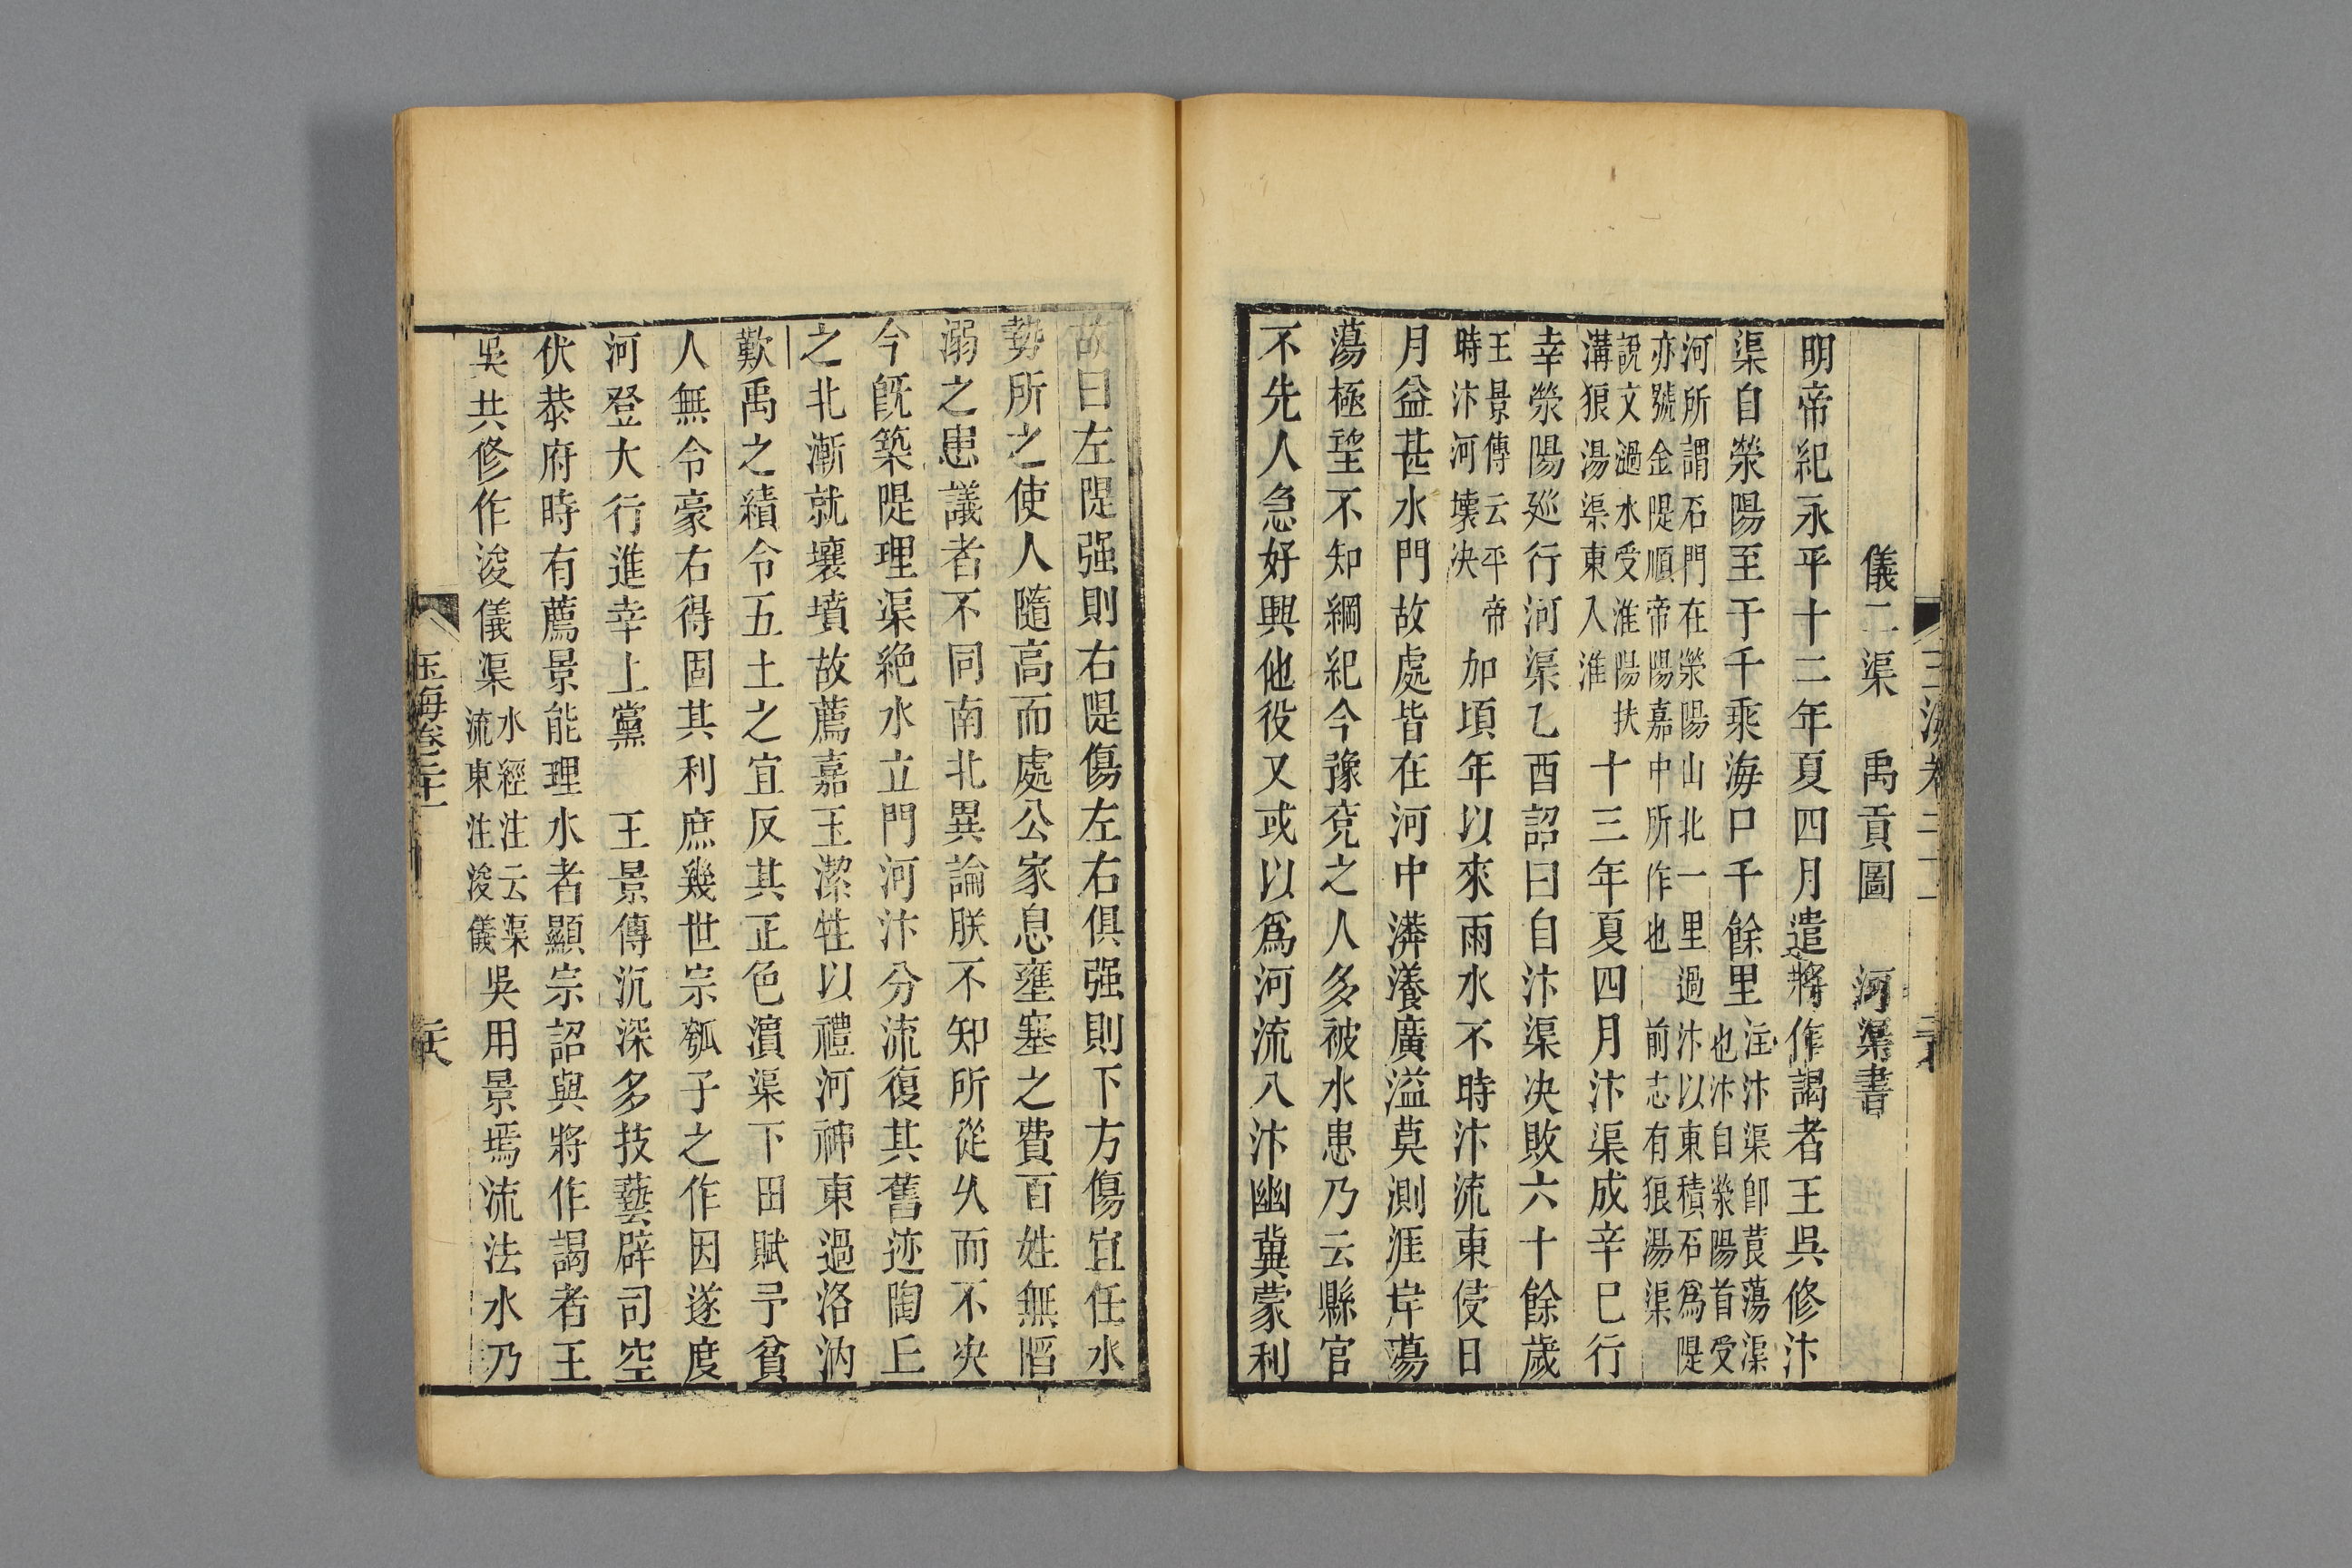 儀二渠　禹貢圖　河渠書
明帝紀永平十二年夏四月遣將作謁者王吳修汴
渠自滎陽至于千乘海口千餘里注汴渠卽莨蕩渠
也汴自滎陽首受
河所謂石門在滎陽山北一里過汴以東積石爲隄
亦號金隄順帝陽嘉中所作也前志有狼湯渠
說文濄水受淮陽扶
溝狼湯渠東入淮十三年夏四月汴渠成辛巳行
幸滎陽廵行河渠乙酉詔曰自汴渠决敗六十餘歲
王景傳云平帝
時汴河壊决加頃年以來雨水不時汴流東侵日
月益甚水門故處皆在河中漭瀁廣溢莫測涯岸蕩
蕩極望不知綱紀今豫兗之人多被水患乃云縣官
不先人急好興他役又或以爲河流入汴幽冀蒙利
故曰左隄强則右隄傷左右俱强則下方傷宜任水
勢所之使人隨高而處公家息壅塞之費百姓無陷
溺之患議者不同南北異論朕不知所從乆而不决
今旣築隄理渠絶水立門河汴分流復其舊迹陶丘
之北漸就壤墳故薦嘉玉潔牲以禮河神東過洛汭
歎禹之績今五土之宜反其正色濵渠下田賦予貧
人無令豪右得固其利庶幾世宗瓠子之作因遂度
河登大行進幸上黨　王景傳沉深多技藝辟司空
伏恭府時有薦景能理水者顯宗詔與將作謁者王
吳共修作浚儀渠水經注云渠
流東注浚儀吳用景墕流法水乃
玉海卷二十一